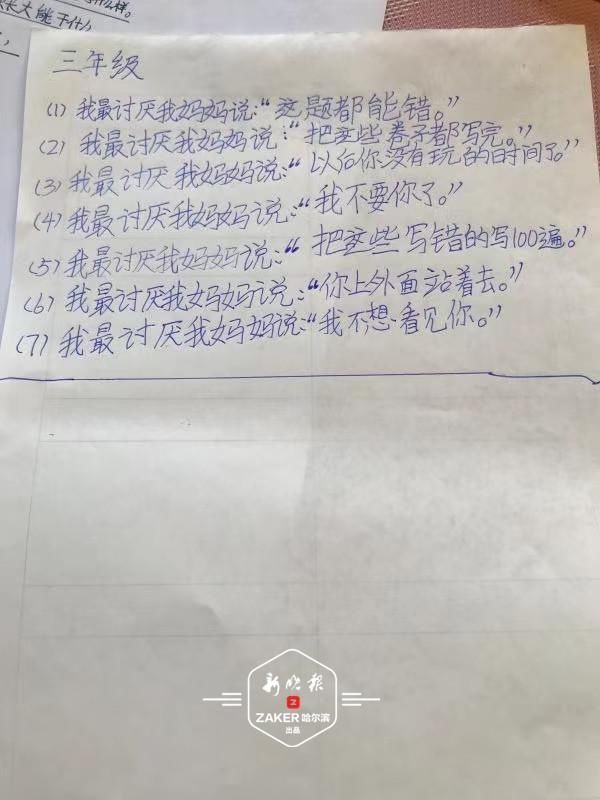 长大能干什
三年级
(1) 我最讨厌我妈妈说:“这题都能错。”
(2) 我最讨厌我妈妈说:“把这些卷子都写完。”
(3) 我最讨厌我妈妈说:“以后你没有玩的时间了。”
(4) 我最讨厌我妈妈说:“我不要你了。”
(5) 我最讨厌我妈妈说:“把这些写错的写100遍。”
(6) 我最讨厌我妈妈说:“你上外面站着去。”
(7) 我最讨厌我妈妈说:“我不想看见你。”
新晚报
ZAKER哈尔滨
出品